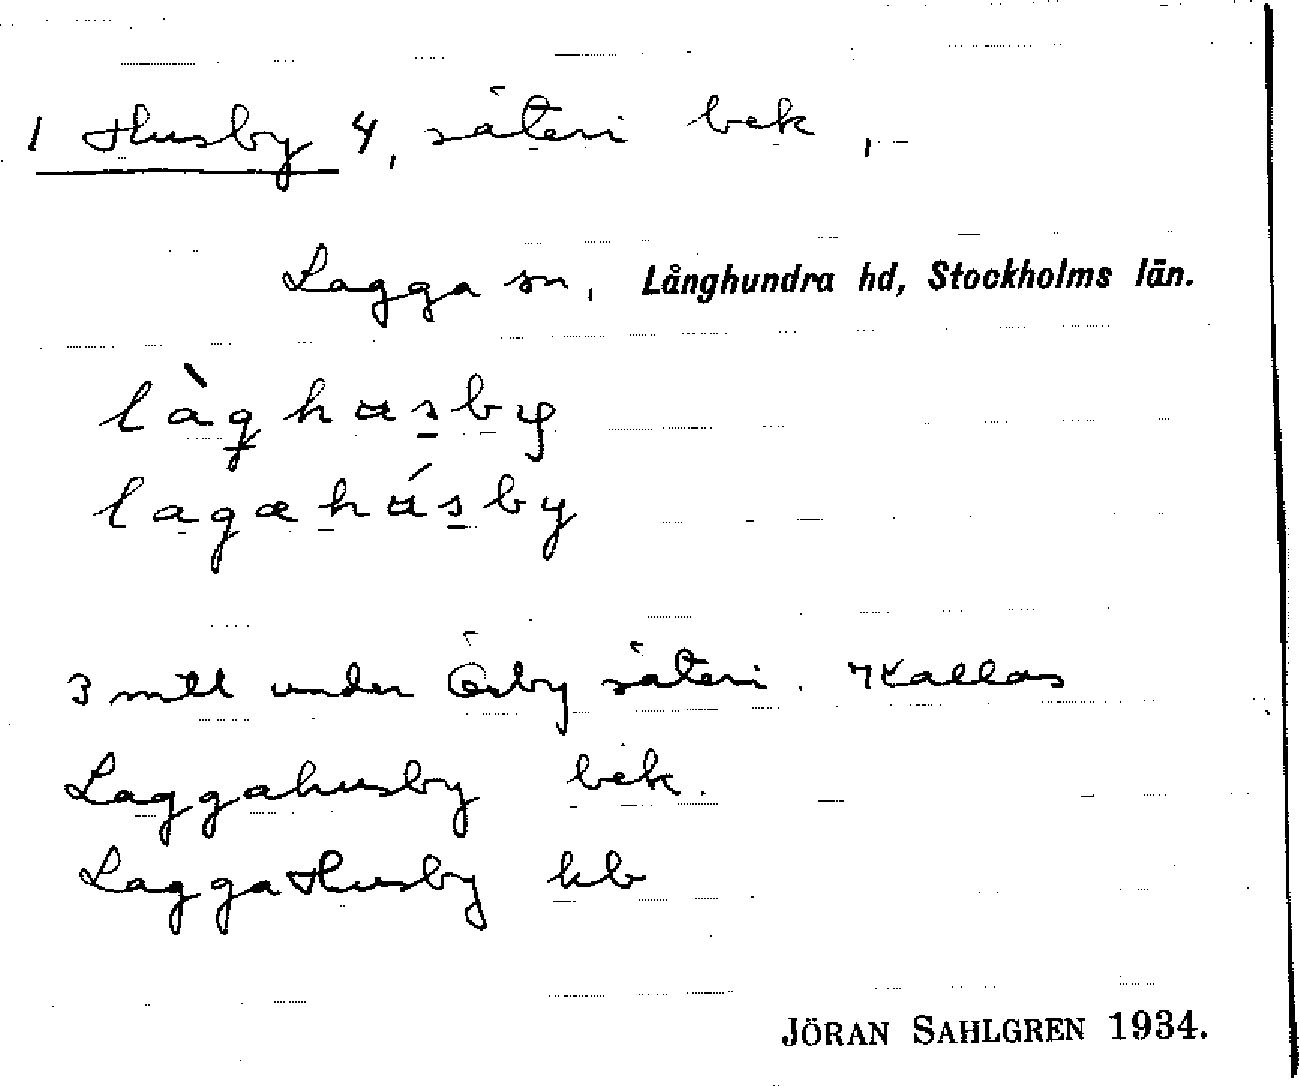 1 Husby 4, säteri bek,
Lagga sn, Långhundra hd, Stockholms län.
làghusby
lagahúsby
3 mtl under Örby säteri. Kallas
Laggahusby bek.
Lagga Husby kb
JÖRAN SAHLGREN 1934.